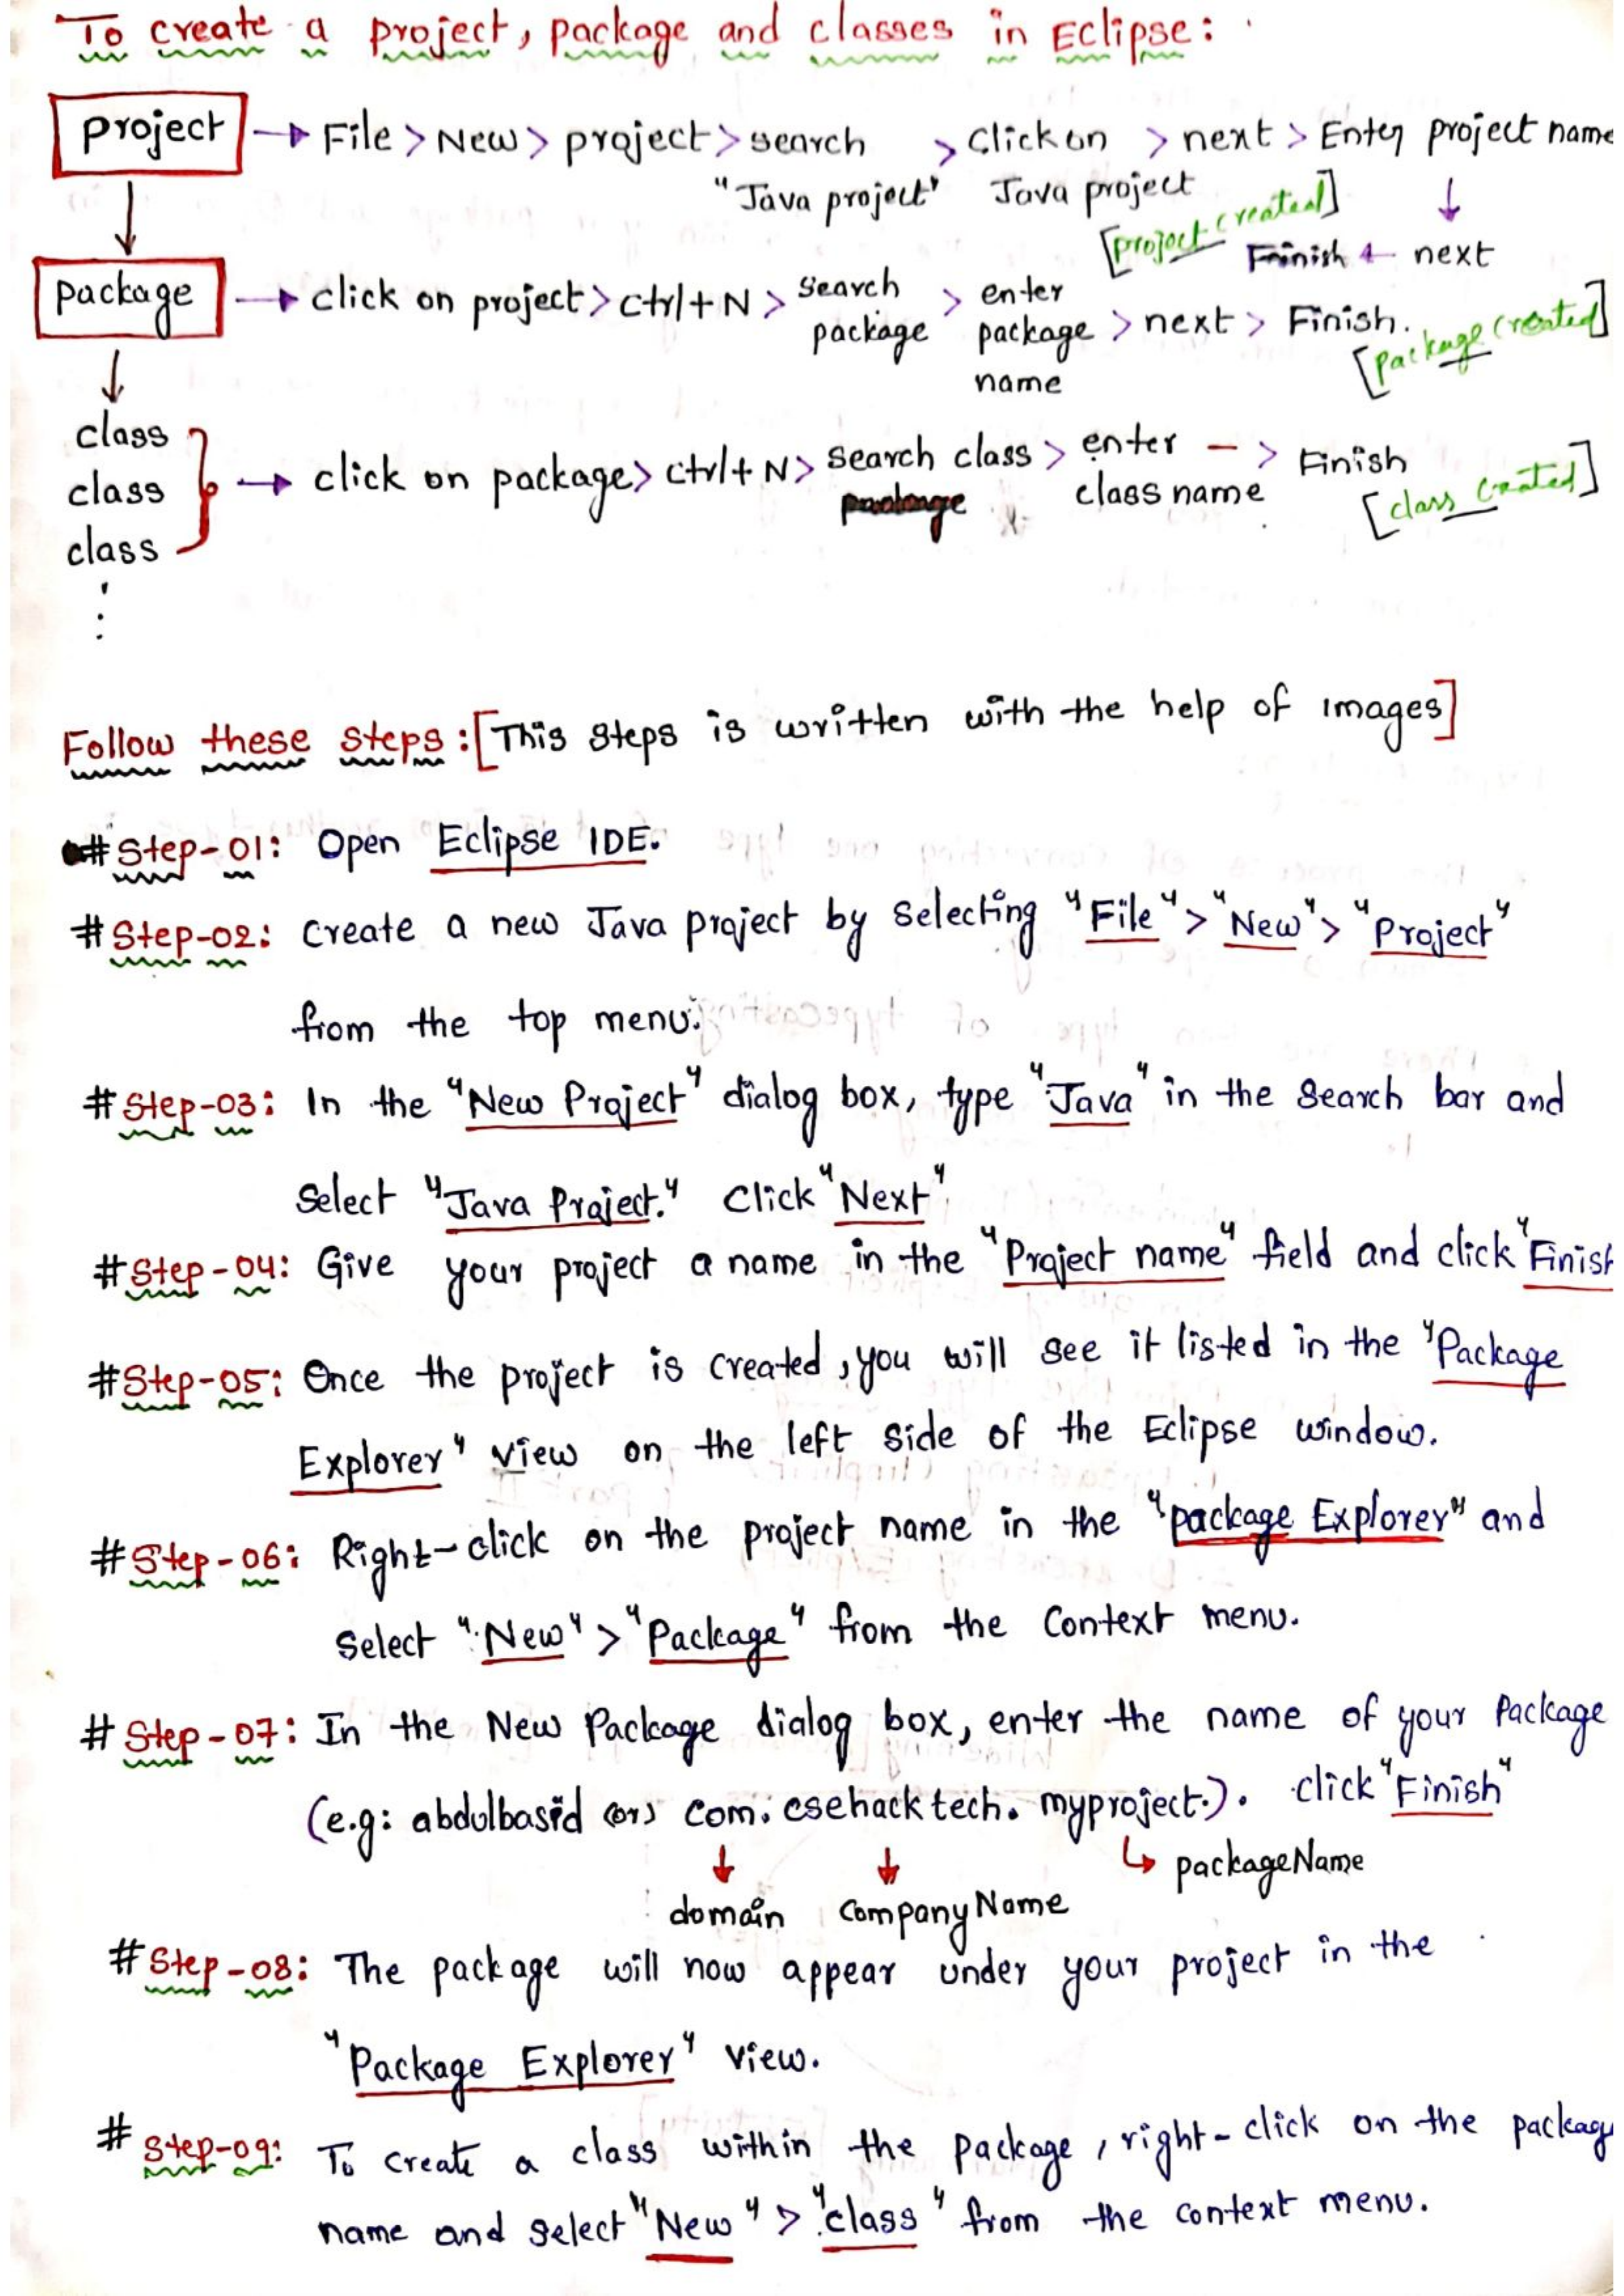 To create a project, package and classes in Eclipse:
project → File > New > project > search > Click on > next > Enter project name
"Java project" Java project ↓
[project created] Finish ← next
↓
package → click on project > ctrl+N > search package > enter package name > next > Finish.
[package created]
↓
class
class
class
⋮
→ click on package > ctrl+N > search class > enter class name — > Finish
[class created]
Follow these steps: [This steps is written with the help of images]
# Step-01: Open Eclipse IDE.
# Step-02: Create a new Java project by selecting "File" > "New" > "Project"
from the top menu.
# Step-03: In the "New Project" dialog box, type "Java" in the search bar and
select "Java Project." Click "Next"
# Step-04: Give your project a name in the "Project name" field and click "Finish
# Step-05: Once the project is created, you will see it listed in the "Package
Explorer" view on the left side of the Eclipse window.
# Step-06: Right-click on the project name in the "package Explorer" and
select "New" > "Package" from the Context menu.
# Step-07: In the New Package dialog box, enter the name of your Package
(e.g: abdulbasid (or) com. csehacktech. myproject.). click "Finish"
↓ ↓ ↳ packageName
domain CompanyName
# Step-08: The package will now appear under your project in the
"Package Explorer" view.
# Step-09: To create a class within the package, right-click on the packag
name and select "New" > "class" from the context menu.